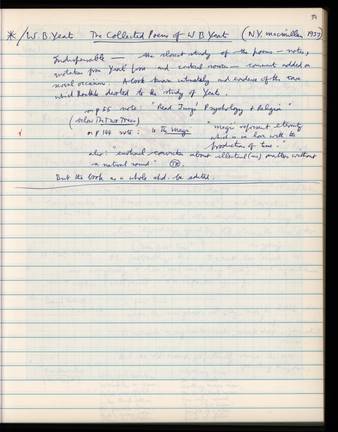 * / W. B. Yeats The Collected Poems of W B Yeats (N.Y. macmillan, 1937)
Indispensable — the closest study of the poems — notes,
quotation from Yeats' prose and critical sources — comment added on
several occasions. A book known intimately and evidence of the care
which Roethke devoted to the study of Yeats.
on p 55 note: "Read Jung's Psychology & Religion"
(below The Two Trees)
on p 144 note: to The Magi "magi represent eternity
which is in love with the
production of time."
also: "mutual conviction about intellectual matters without
a natural mind"
But the book as a whole shd. be studied.